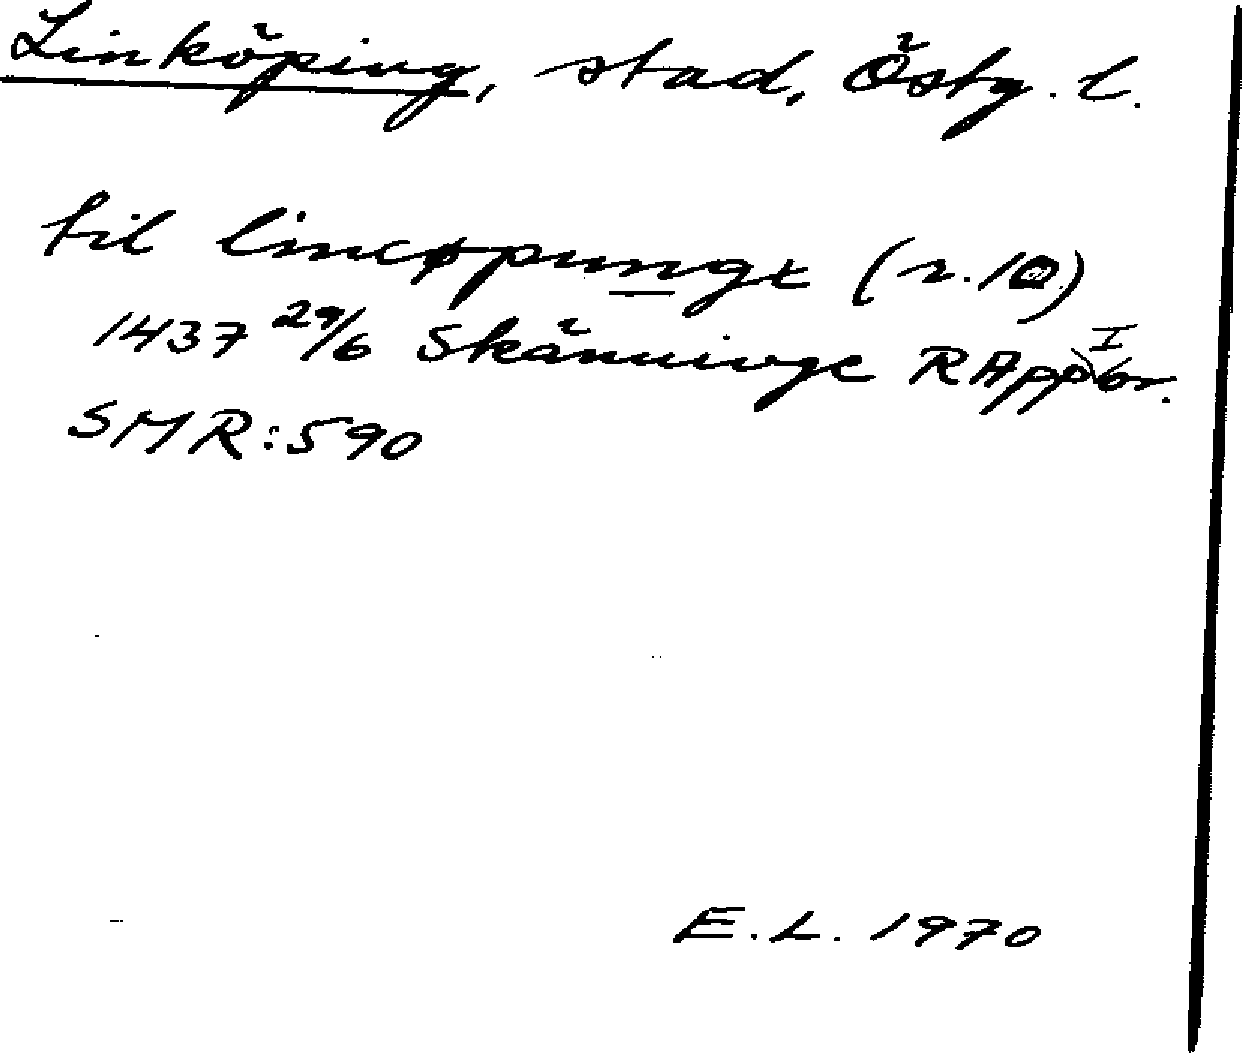 Linköping, stad, Östg. l.
til lincøpungx (r. 10)
1437 29/6 Skänninge RApp I br.
SMR: 590
E.L. 1970